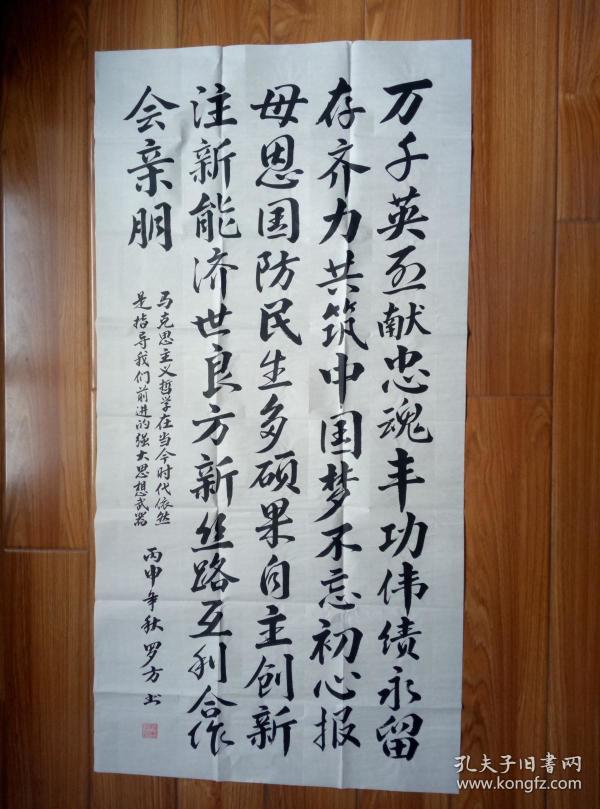 万千英烈献忠魂丰功伟绩永留
存齐力共筑中国梦不忘初心报
母恩国防民生多硕果自主创新
注新能济世良方新丝路互利合作
会亲朋
马克思主义哲学在当今时代依然
是指导我们前进的强大思想武器
丙申年秋罗方书
孔夫子旧书网
www.kongfz.com